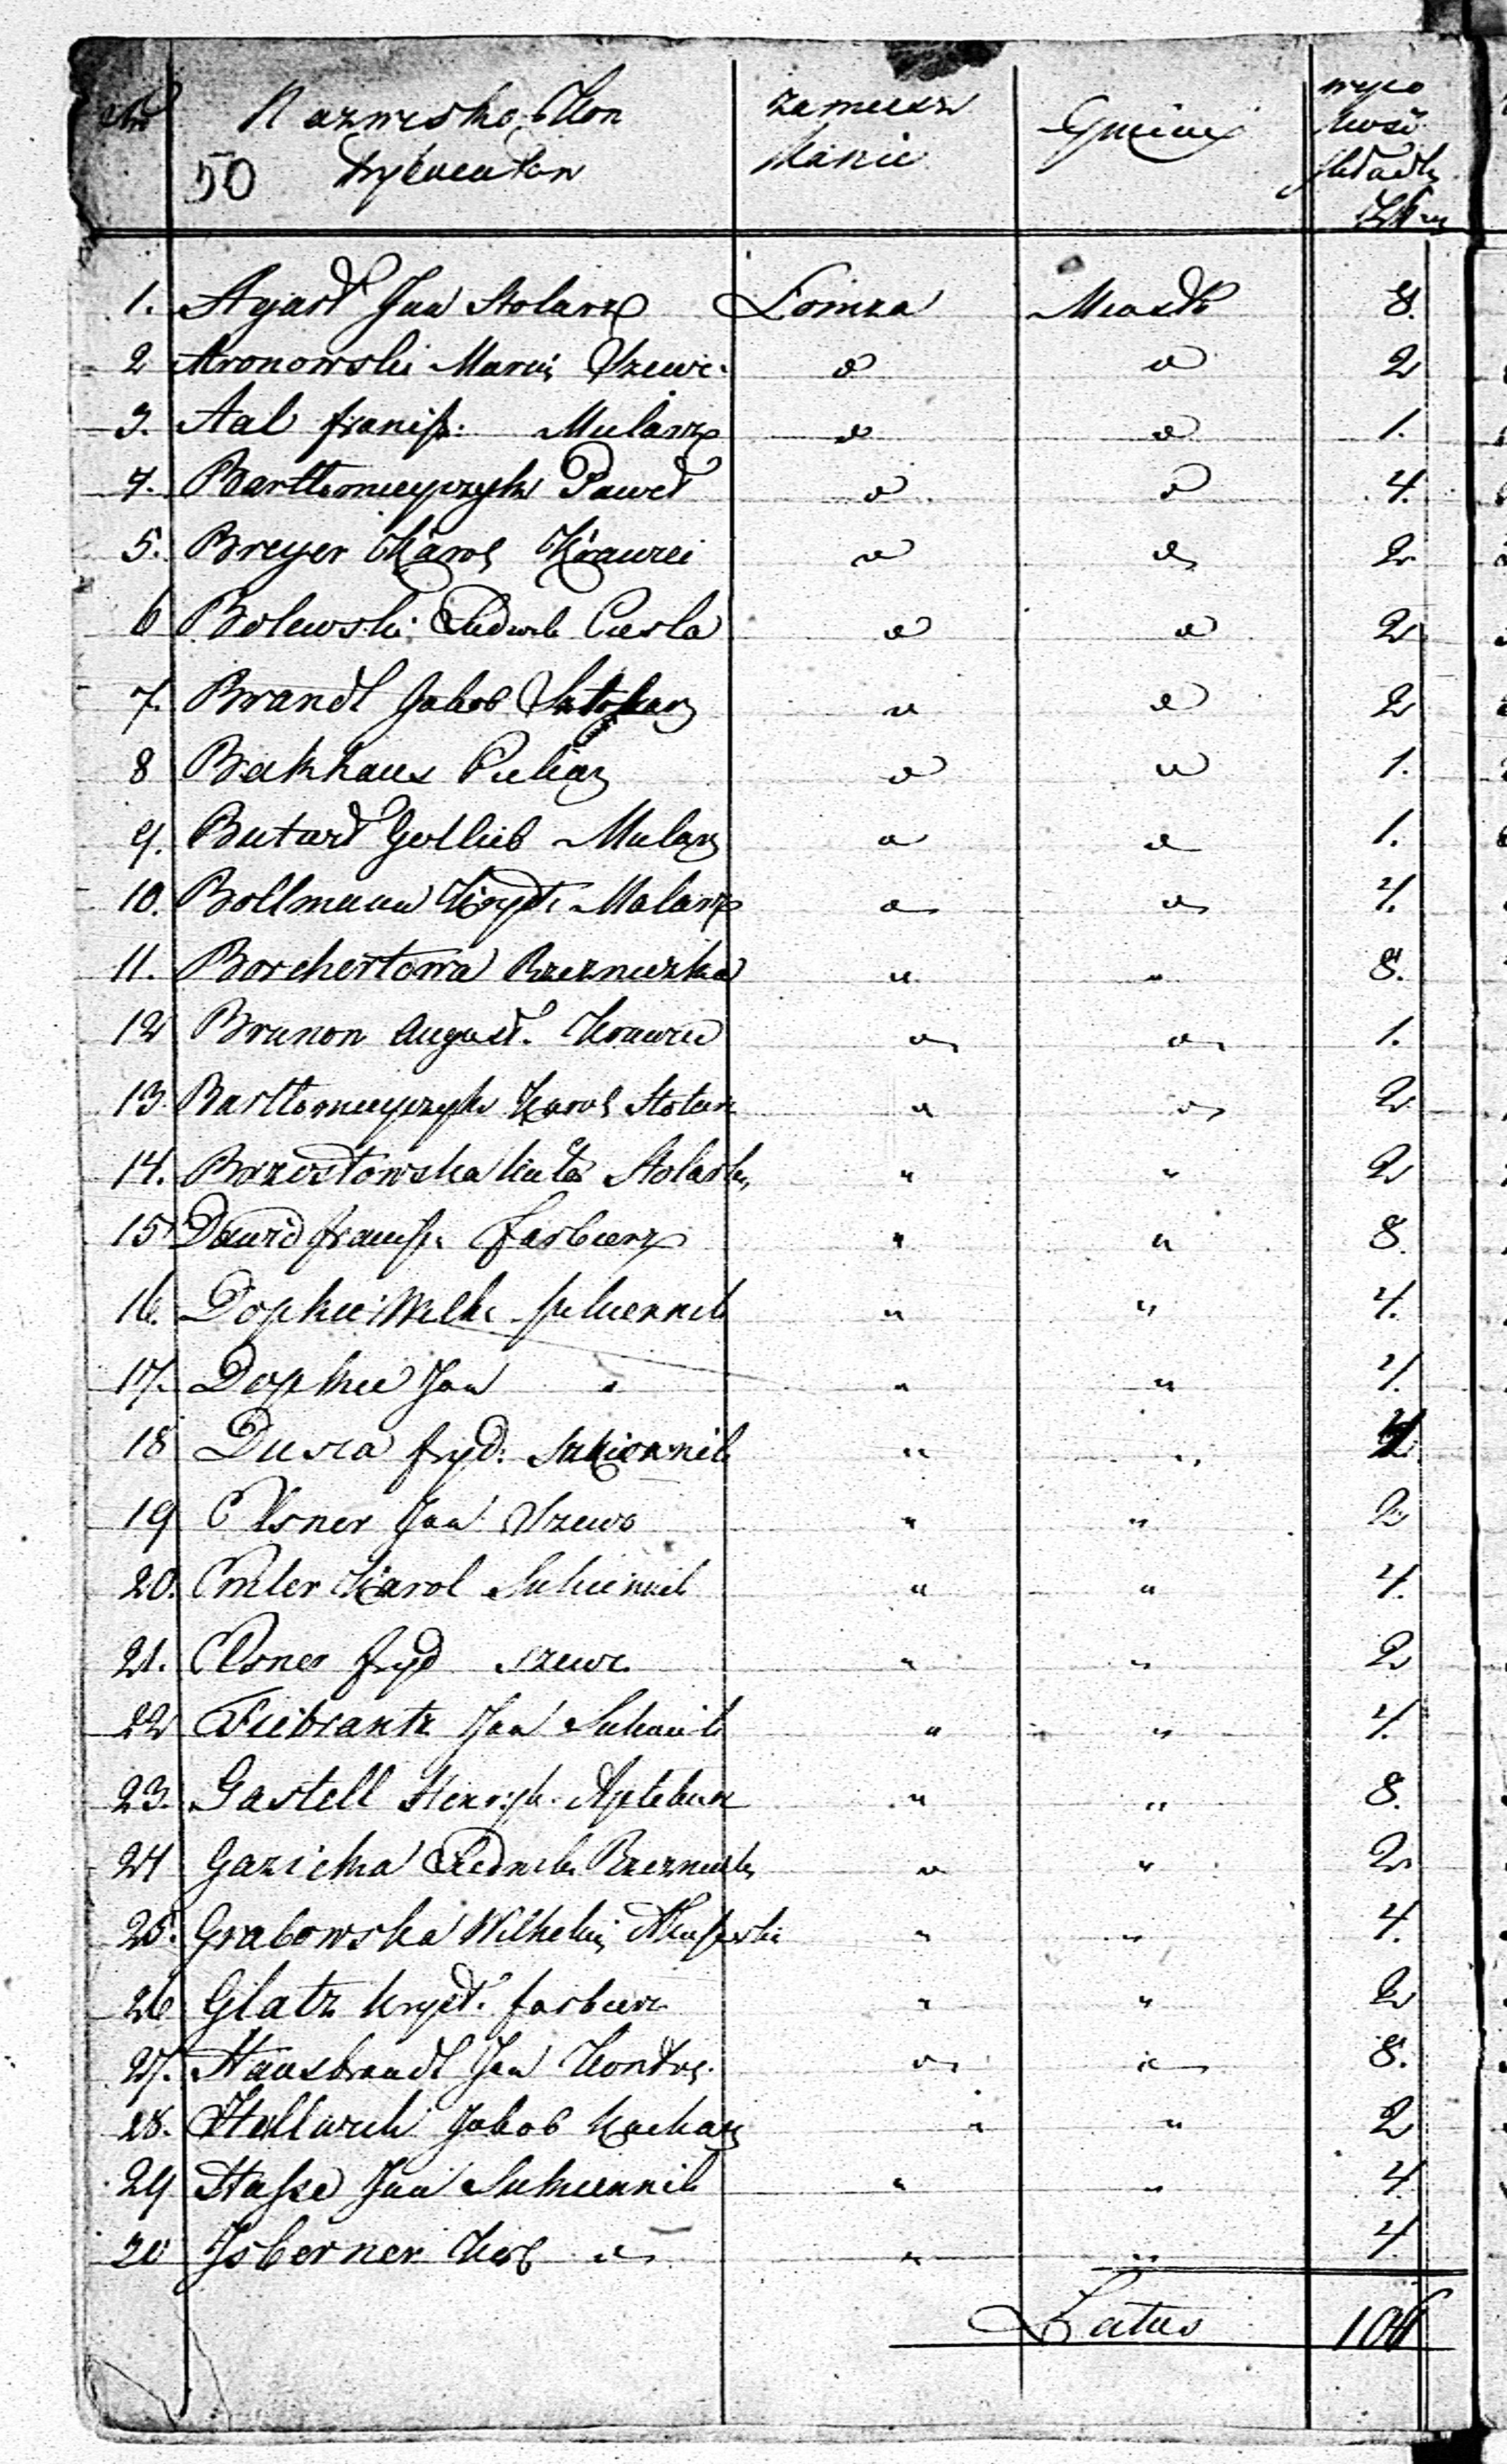 Nr Nazwisko Kon zamiesz Gmina wyso
50 trybuentów kanie kość
składki
Zł
1. Hyart Jan Stolarz Łomza Miasto 8.
2 Aronowski Marcin Szewc d d 2
3. Aal franisz: Mularz d d 1.
4. Bartłomieyczyk Paweł d d 4.
5. Breyer Karol Krawiec d d 2
6 Bolewski Ludwik Ciesla d d 2
7. Brandt Jakob d d 2
8 Bekhaus Piekarz d d 1.
9. Butard Gotlieb Mularz d d 1.
10. Bollmann Kryst. Malarz d d 4.
11. Borchertowa Rzezniczka " " 8.
12 Brunon August. Krawiec d d 1.
13. Bartłomieyczyk Karol Stolarz " d 2
14. Brzostowska Stolark " " 2
15 Dawid franisz. farbierz " " 8.
16. Dopkie Wilh. sukiennik " " 4.
17. Dopkie Jan " " " 4.
18 Dusca fryd: Sukiennik " "
19 Elsner Jan Szewc " " 2
20. Emler Karol Sukiennik " " 4.
21. Elsner fryd szewc " " 2
22 Fiebrantz Jan Sukiennik " " 4.
23. Gastell Henryk. Aptekarz " " 8.
24 Gazicka Ludwik. Rzeznick " " 2
25. Grabowska Wilhelm " " 4.
26 Glatz Kryst. farbierz " " 2
27. Hausbrandt Jan Kontrol. " " 8.
28. Hellwich Jakob " " 2
29 Hasse Jan Sukiennik " " 4
30 Isberner Karl d " " 4.
Latus 106